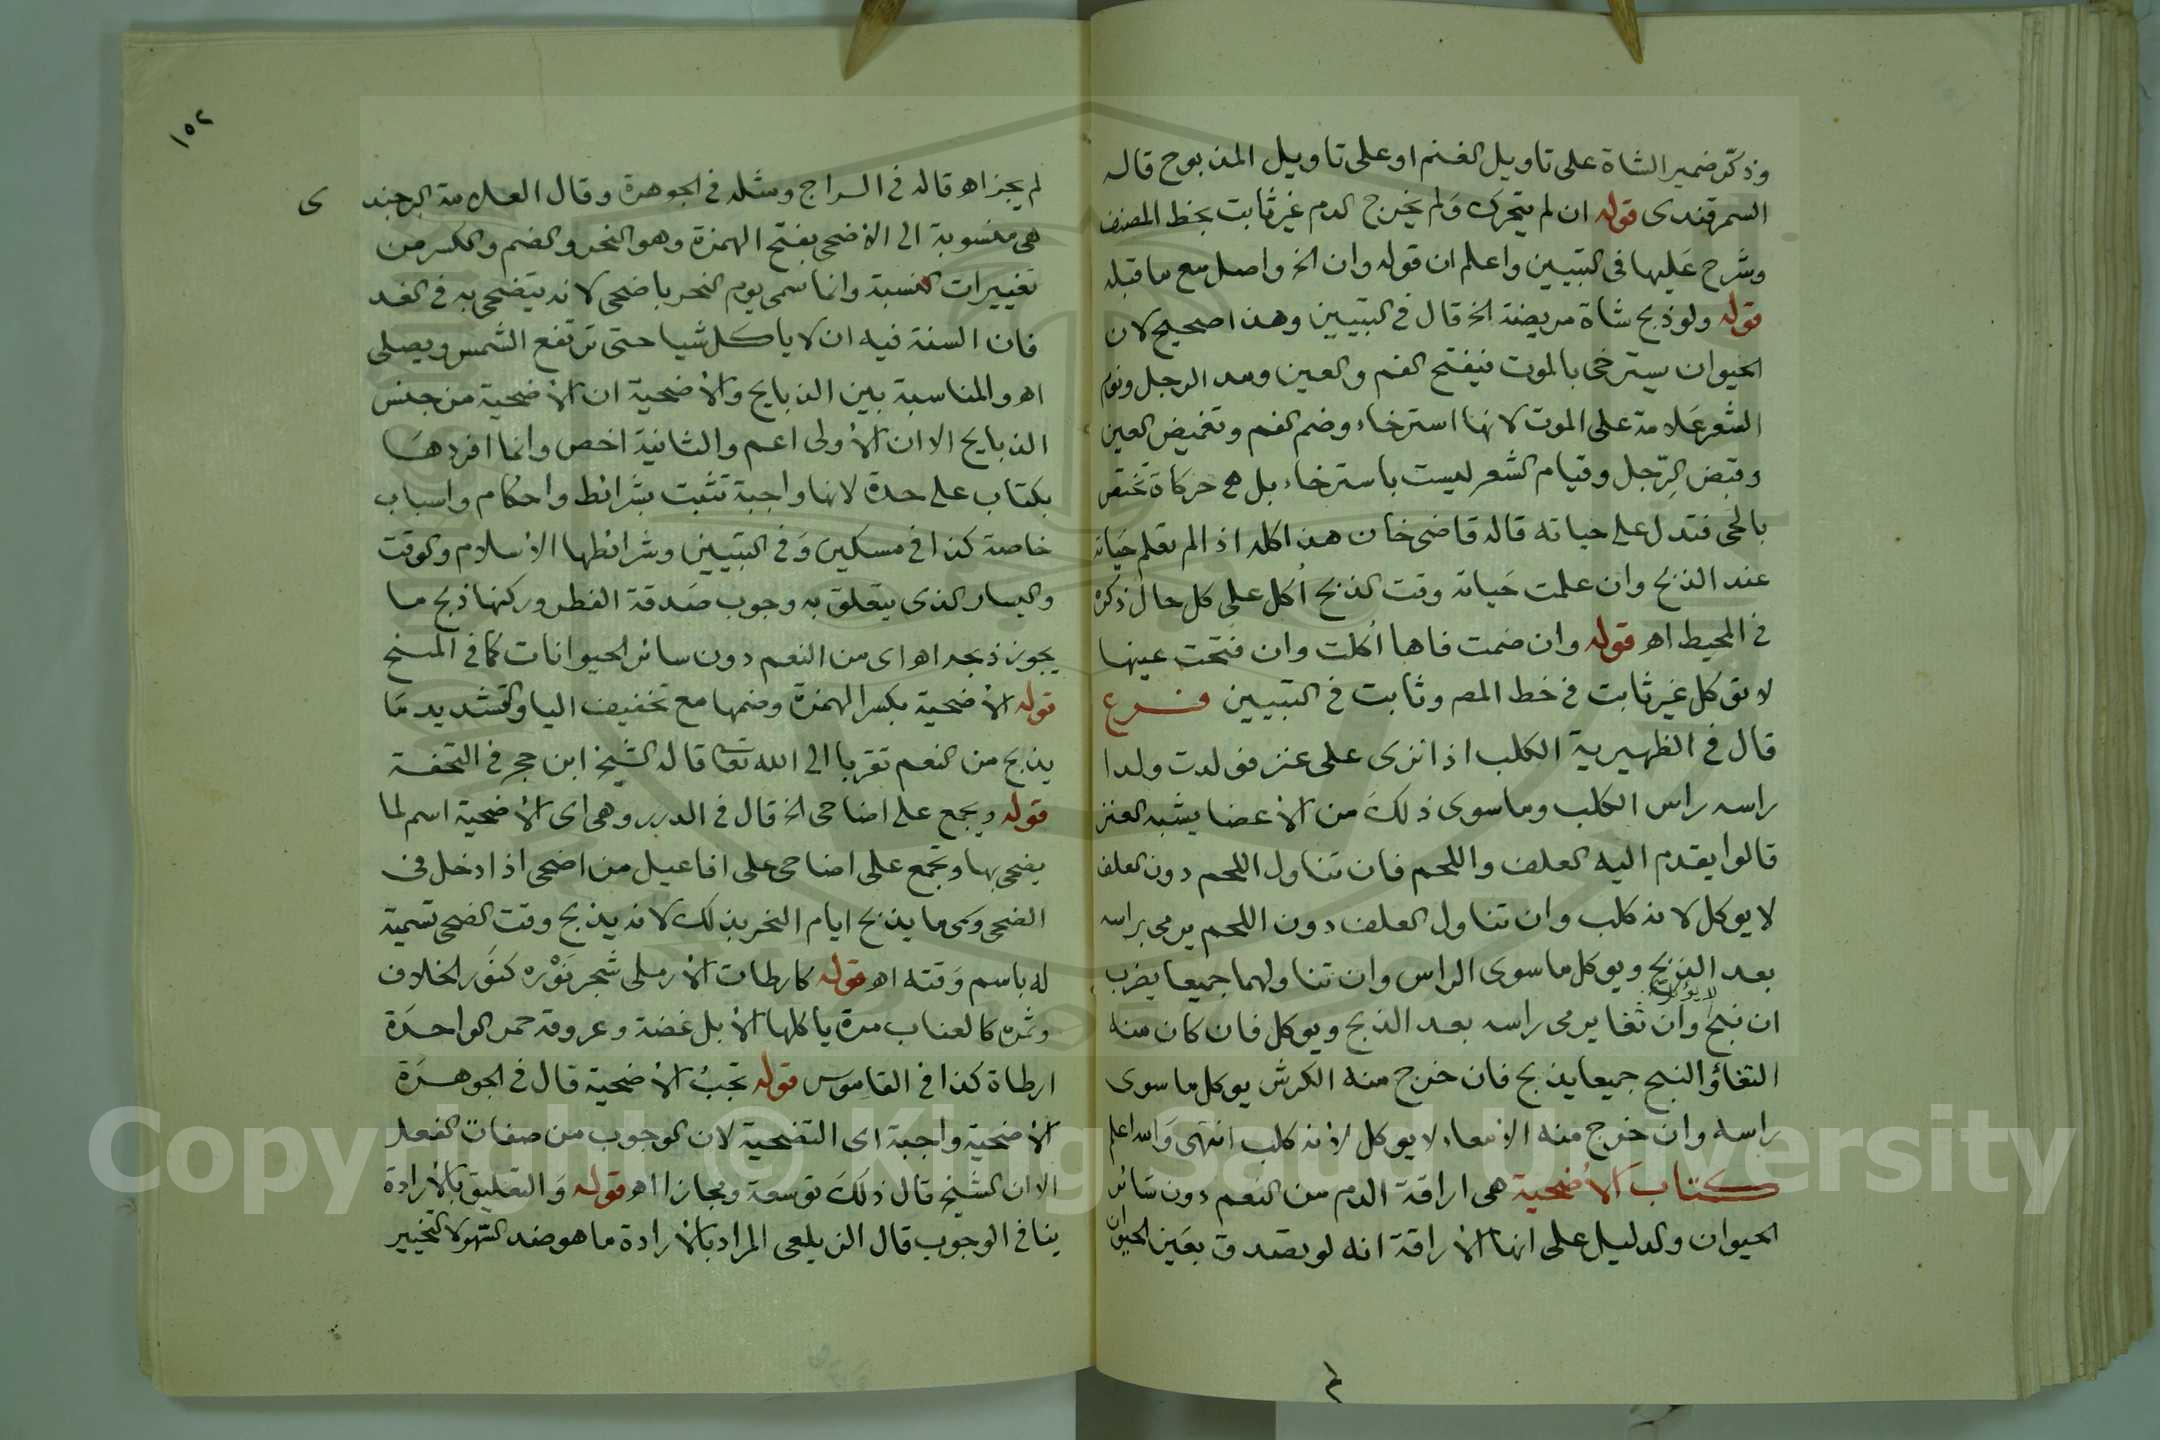 وذكر ضمير الشاة على تاويل الغنم او على تاويل المذبوح قاله
السمرقندى قوله ان لم يتحرك ولم يخرج الدم غير ثابت بخط المصنف
وشرح عليها فى التبيين واعلم ان قوله وان الخ واصل مع ما قبله
قوله ولو ذبح شاة مريضة الخ قال فى التبيين وهذا صحيح لان
الحيوان يسترخى بالموت فيفتح الفم والعين ومد الرجل ونوم
الشعر علامة على الموت لانها استرخاء وضم الفم وتغميض العين
وقبض الرجل وقيام الشعر ليست باسترخاء بل هى حركاة تختص
بالحى فتدل على حياته قاله قاضى خان هذا كله اذا لم تعلم حياته
عند الذبح وان علمت حياته وقت الذبح اكل على كل حال ذكره
فى المحيط اه قوله وان ضمت فاها اكلت وان فتحت عينها
لا توكل غير ثابت فى خط المص وثابت فى التبيين فرع
قال فى الظهيرية الكلب اذا نزى على عنز فولدت ولدا
راسه راس الكلب وما سوى ذلك من الاعضا يشبه العنز
قالوا يقدم اليه العلف واللحم فان تناول اللحم دون العلف
لا يوكل لانه كلب وان تناول العلف دون اللحم يرمى براسه
بعد الذبح ويوكل ما سوى الراس وان تناولهما جميعا يضرب
لا يوكل
ان نبح وان ثغا يرمى راسه بعد الذبح ويوكل فان كان منه
الثغاؤ النبح جميعا يذبح فان خرج منه الكرش يوكل ما سوى
راسه وان خرج منه الامعاء لا يوكل لانه كلب انتهى والله اعلم
كتاب الاضحية هى اراقة الدم من النعم دون سائر
الحيوان والدليل على انها الاراقة انه لو تصدق بعين الحيوان
١٥٢
لم يجز اه قاله فى السراج ومثله فى الجوهرة وقال العلامة البرجندى
هى منسوبة الى الاضحى بفتح الهمزة وهو النحر والضم والكسر من
تغييرات النسبة وانما سمى يوم النحر باضحى لانه يتضحى به فى الغد
فان السنة فيه ان لا ياكل شيا حتى ترتفع الشمس ويصلى
اه والمناسبة بين الذبايح والاضحية ان الاضحية من جنس
الذبايح الا ان الاولى اعم والثانية اخص وانما افردها
بكتاب على حدة لانها واجبة تثبت بشرائط واحكام واسباب
خاصة كذا فى مسكين وفى التبيين وشرائطها الاسلام والوقت
واليسار الذى يتعلق به وجوب صدقة الفطر وركنها ذبح ما
يجوز ذبحه اه اى من النعم دون سائر الحيوانات كما فى المنح
قوله الاضحية بكسر الهمزة وضمها مع تخفيف اليا والتشديد ما
يذبح من النعم تقربا الى الله تعا قاله الشيخ ابن حجر فى التحفة
قوله ويجمع على اضاحى الخ قال فى الدرر وهى اى الاضحية اسم لما
يضحى بها وتجمع على اضاحى على افاعيل من اضحى اذا دخل فى
الضحى وسمى ما يذبح ايام النحر بذلك لانه يذبح وقت الضحى تسمية
له باسم وقته اه قوله كارطات الارملى شجر نوره كنور الخلاف
وثمره كالعناب مرة ياكلها الابل غضة وعروقه حمر الواحدة
ارطاة كذا فى القاموس قوله تجب الاضحية قال فى الجوهرة
الاضحية واجبة اى التضحية لان الوجوب من صفات الفعل
الا ان الشيخ قال ذلك توسعة ومجازا اه قوله والتعليق بالارادة
ينافى الوجوب قال الزيلعى المراد بالارادة ما هو ضد السهو لا التخيير
Copyright © King Saud University